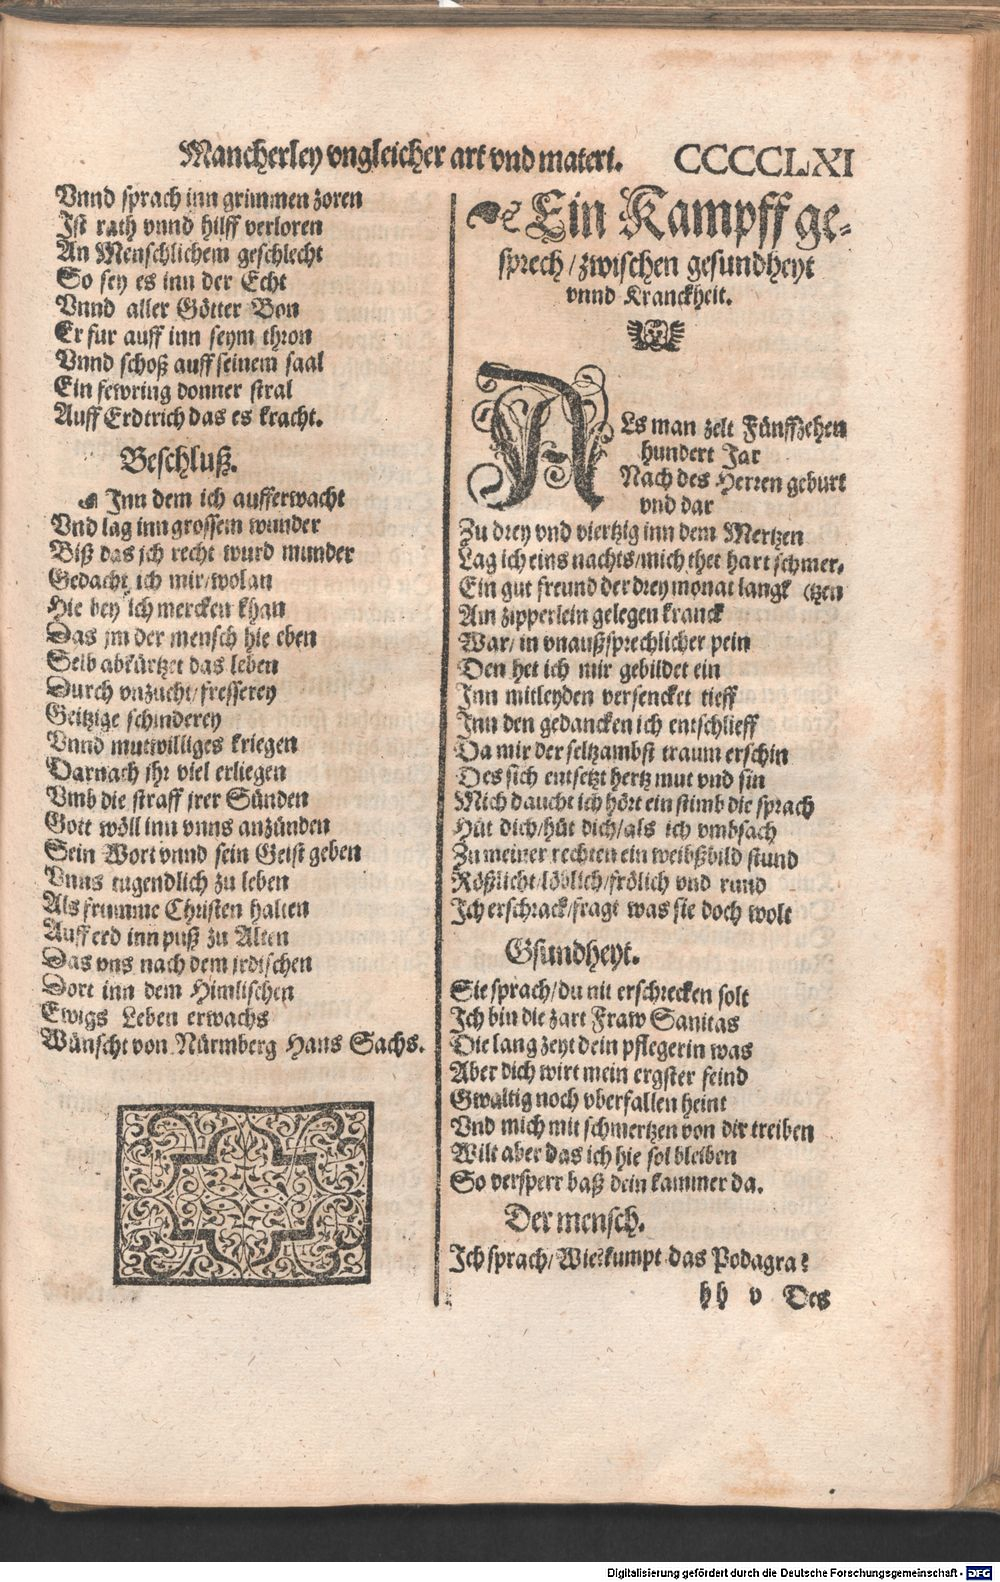 Mancherley vngleicher art vnd materi. CCCCCLXI
Vnnd sprach inn grimmen zoren
Ist rath vnnd hilff verloren
An Menschlichem geschlecht
So sey es inn der Echt
Vnnd aller Götter Bon
Er fur auff inn seym thron
Vnnd schoß auff seinem saal
Ein fewring donner stral
Auff Erdtrich das es kracht.
Beschluß.
Inn dem ich aufferwacht
Vnd lag inn grossem wunder
Biß das ich recht wurd munder
Gedacht ich mir/wolan
Hie bey ich mercken khan
Das jm der mensch hie eben
Selb abkürtzet das leben
Durch vnzucht/fresserey
Geitzige schinderey
Vnnd mutwilliges kriegen
Darnach jhr viel erliegen
Vmb die straff jrer Sünden
Gott wöll inn vnns anzünden
Sein Wort vnnd sein Geist geben
Vnns tugendlich zu leben
Als frumme Christen halten
Auff erd inn puß zu Alten
Das vns nach dem jrdischen
Dort inn dem Himlischen
Ewigs Leben erwachs
Wünscht von Nürmberg Hans Sachs.
Ein Kampff ge-
sprech/zwischen gesundheyt
vnnd Kranckheit.
ALs man zelt Fünffzehen
hundert Jar
Nach des Herren geburt
vnd dar
Zu drey vnd viertzig inn dem Mertzen
Lag ich eins nachts/mich thet hart schmer-
Ein gut freund der drey monat langk (tzen
Am zipperlein gelegen kranck
War/in vnaußsprechlicher pein
Den het ich mir gebildet ein
Inn mitleyden versencket tieff
Inn den gedancken ich entschlieff
Da mir der seltzambst traum erschin
Des sich entsetzt hertz mut vnd sin
Mich daucht ich hört ein stimb die sprach
Hüt dich/hüt dich/als ich vmbsach
Zu meiner rechten ein weibßbild stund
Rößlicht/löblich/frölich vnd rund
Ich erschrack/fragt was sie doch wolt
Gsundheyt.
Sie sprach/du nit erschrecken solt
Ich bin die zart Fraw Sanitas
Die lang zeyt dein pflegerin was
Aber dich wirt mein ergster feind
Gwaltig noch vberfallen heint
Vnd mich mit schmertzen von dir treiben
Wilt aber das ich hie sol bleiben
So versperr baß dein kammer da.
Der mensch.
Ich sprach/Wie?kumpt das Podagra?
hh v Des
Digitalisierung gefördert durch die Deutsche Forschungsgemeinschaft - DFG